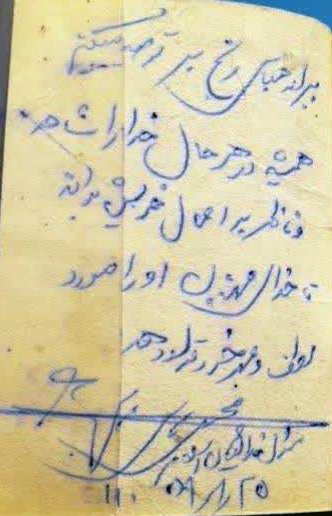 برادر عباس رنج بر توصیه میکنم
همیشه در هر حال خدا را شاهد
و ناظر بر اعمال خویش بداند
تا خدای مهربان او را مورد
لطف و مهر خود قرار دهد
۵۹/۸/۲۵